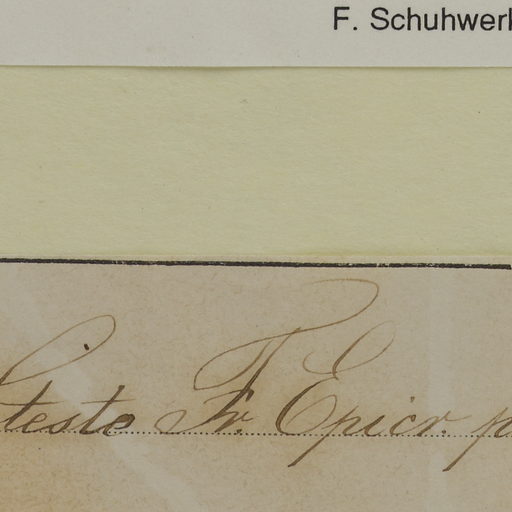 F. Schuhwerk
teste Fr. Epicr. p